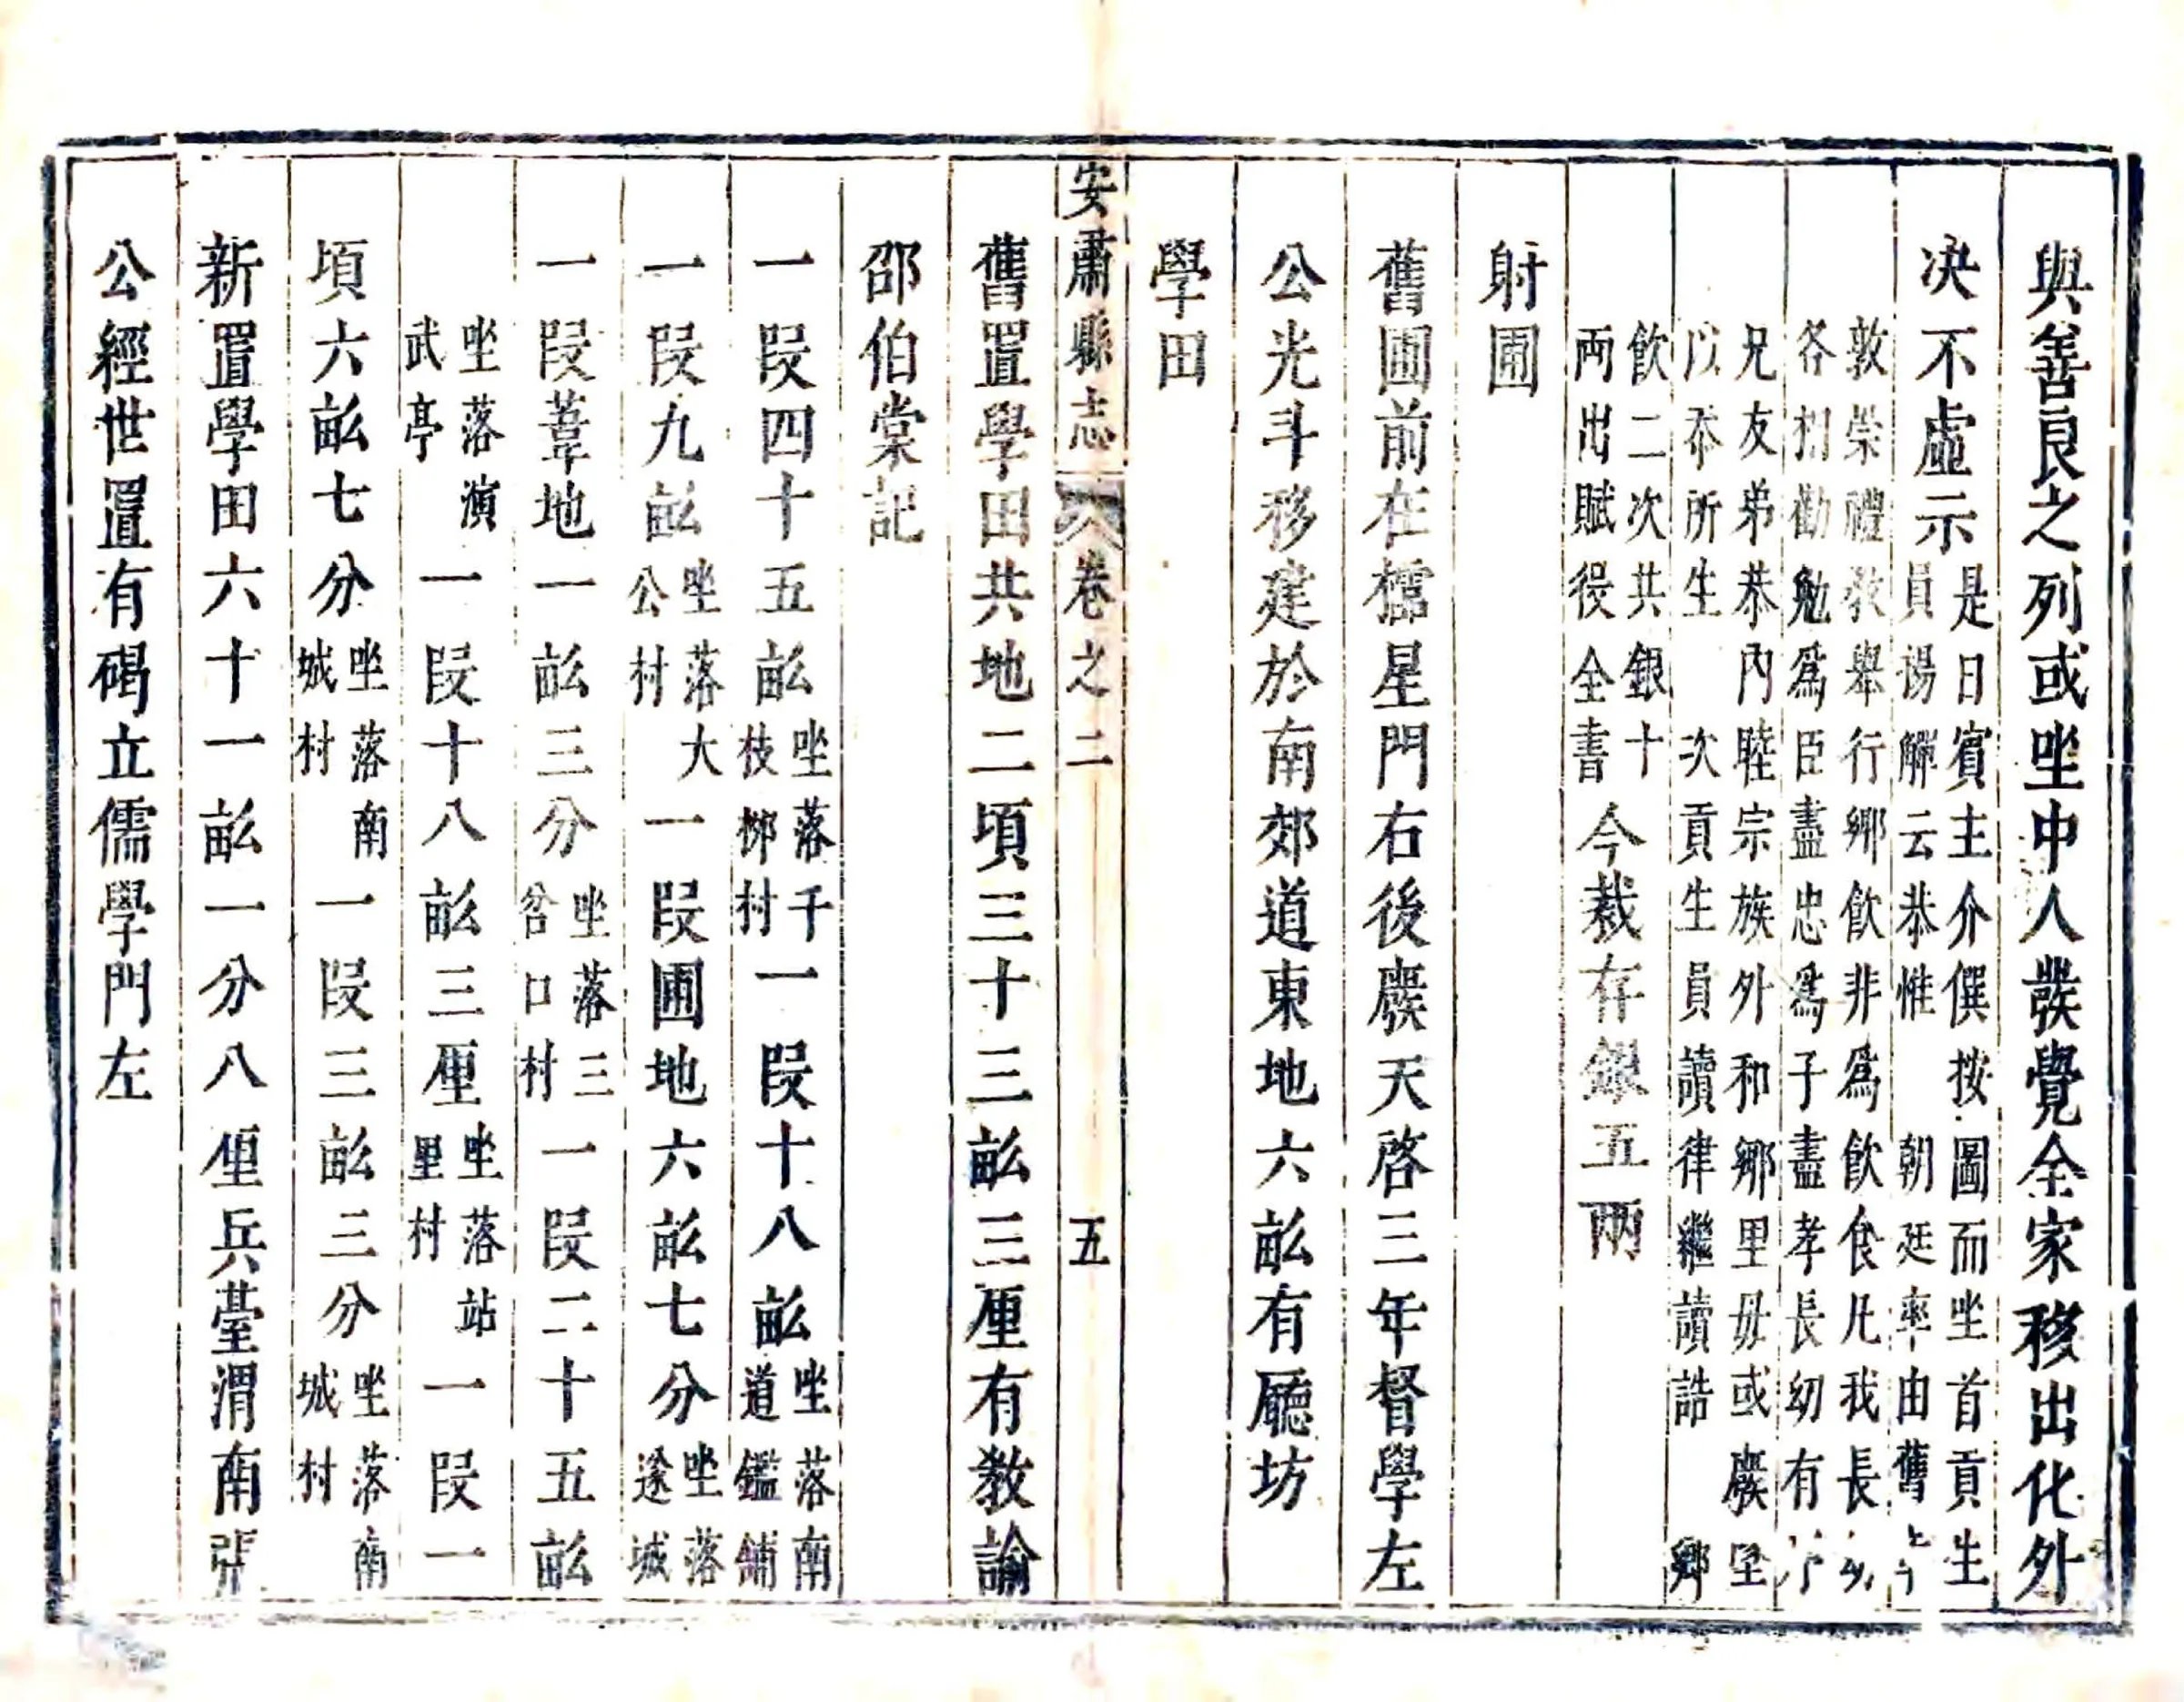 與善良之列或坐中人發覺全家移出化外
決不虛示是日賓主介僎按圖而坐首貢生員揚觶云恭惟 朝廷率由舊
敦崇禮敎舉行鄉飲非爲飲食凡我長幼各相勸勉爲臣盡忠爲子盡孝長幼有
兄友弟恭內睦宗族外和鄉里毋或廢墜以忝所生 次貢生員讀律繼讀誥 鄉
飲二次共銀十兩出賦役全書今裁存銀五兩
射圃
舊圃前在櫺星門右後廢天啓三年督學左
公光斗移建於南郊道東地六畝有廳坊
學田
安肅縣志 卷之二 五
舊置學田共地二頃三十三畝三厘有教諭
邵伯棠記
一段四十五畝坐落千枝柳村一段十八畝坐落南道鑑舖
一段九畝坐落大公村一段圃地六畝七分坐落遂城
一段葦地一畝三分坐落三岔口村一段二十五畝
坐落演武亭一段十八畝三厘坐落站里村一段一
頃六畝七分坐落南城村一段三畝三分坐落南城村
新置學田六十一畝一分八厘兵臺渭南張
公經世置有碣立儒學門左